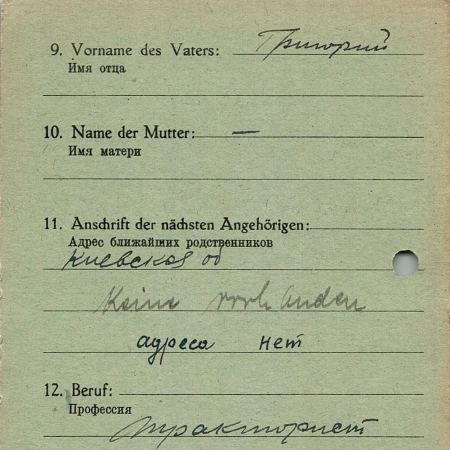 9. Vorname des Vaters: Григорий
Имя отца
10. Name der Mutter: —
Имя матери
11. Anschrift der nächsten Angehörigen:
Адрес ближайших родственников
Киевская об
Keine vorhanden
адреса нет
12. Beruf:
Профессия
Тракторист